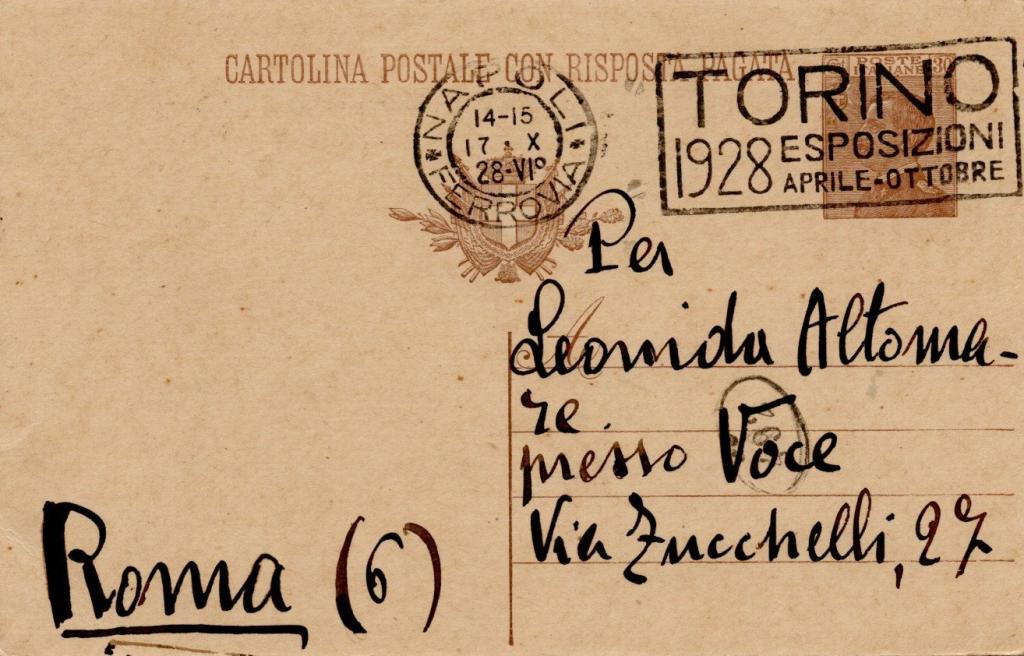 CARTOLINA POSTALE CON RISPOSTA PAGATA
POSTE
ITALIANE
30
NAPOLI
14-15
17 · X
28-VIº
FERROVIA
TORINO
1928 ESPOSIZIONI
APRILE-OTTOBRE
Per
Leonida Altoma-
re
presso Voce
Via Zucchelli, 27
Roma (6)